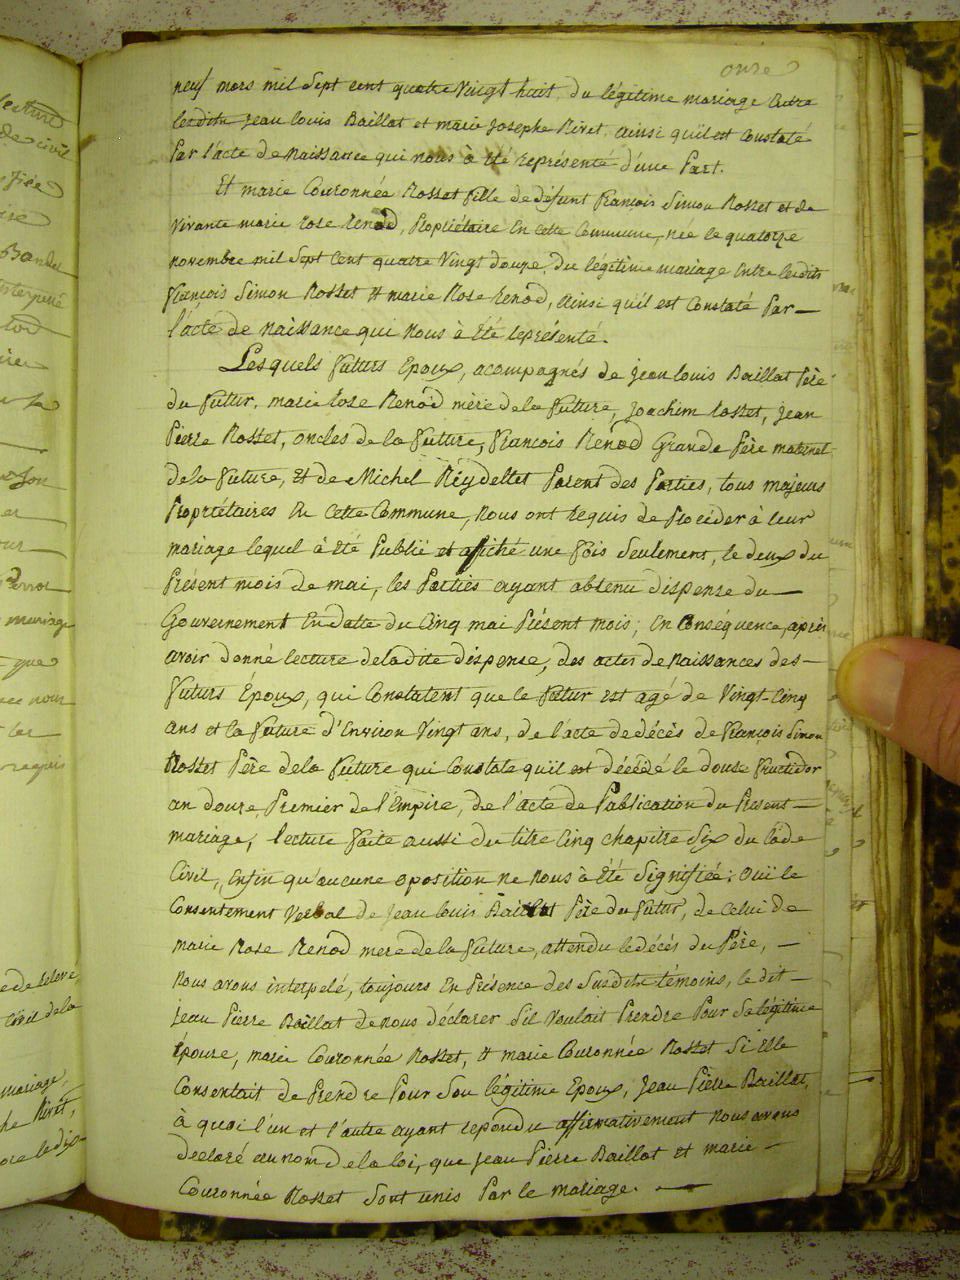 onze
neuf mars mil Sept cent quatre Vingt huit, du légitime mariage Entre
lesdits Jean Louis Baillat et marie Josephe Nivet, ainsi qu'il est Constaté
Par l'acte de Naissance qui nous à été représenté d'une Part.
Et marie Couronnée Rosset fille de défunt François Simon Rosset et de
Vivante marie rose Renod, Propriétaire En cette Commune, née le quatorze
novembre mil Sept Cent quatre Vingt douze, du légitime mariage Entre lesdits
François Simon Rosset Et marie Rose Renod, ainsi qu'il est Constaté Par
l'acte de Naissance qui Nous à Eté représenté.
Lesquels Futurs Epoux, acompagnés de Jean Louis Baillat Père
du Futur, marie Rose Renod mère de la Future, Joachim Rosset, Jean
Pierre Rosset, oncles de la Future, François Renod Grande Père maternel
de la Future, Et de Michel Reydellet Parent des Parties, tous majeurs
Propriétaires En Cette Commune, Nous ont Requis de Procéder à leur
mariage lequel à Eté Publié et affiché une Fois Seulement, le deux du
Présent mois de mai, les Parties ayant obtenu dispense du
Gouvernement En datte du Cinq mai Présent mois; En Conséquence, après
avoir donné lecture de la dite dispense, des actes de Naissances des
Futurs Époux, qui Constatent que le Futur est agé de Vingt-Cinq
ans et la Future d'Environ Vingt ans, de l'acte de décès de François Simon
Rosset Père de la Future qui Constate qu'il est décédé le douse Fructidor
an douze, Premier de l'Empire, de l'acte de Publication du Présent
mariage, lecture Faite aussi du titre Cinq chapitre Six du Code
Civil, Enfin qu'aucune oposition ne Nous à Été Signifiée; Ouï le
Consentement Verbal de Jean Louis Baillat Père du Futur, de Celui de
marie Rose Renod mere de la Future, attendu le décès du Père,
Nous avons interpelé, toujours En Présence des Susdits témoins, le dit
Jean Pierre Baillat de nous déclarer s'il Voulait Prendre Pour Sa légitime
Epouse, marie Couronnée Rosset, Et marie Couronnée Rosset Si Elle
Consentait de Prendre Pour Son légitime Epoux, Jean Pierre Baillat,
à quoi l'un et l'autre ayant repondu affirmativement Nous avons
declaré au nom de la loi, que Jean Pierre Baillat et marie
Couronnée Rosset Sont unis Par le mariage.